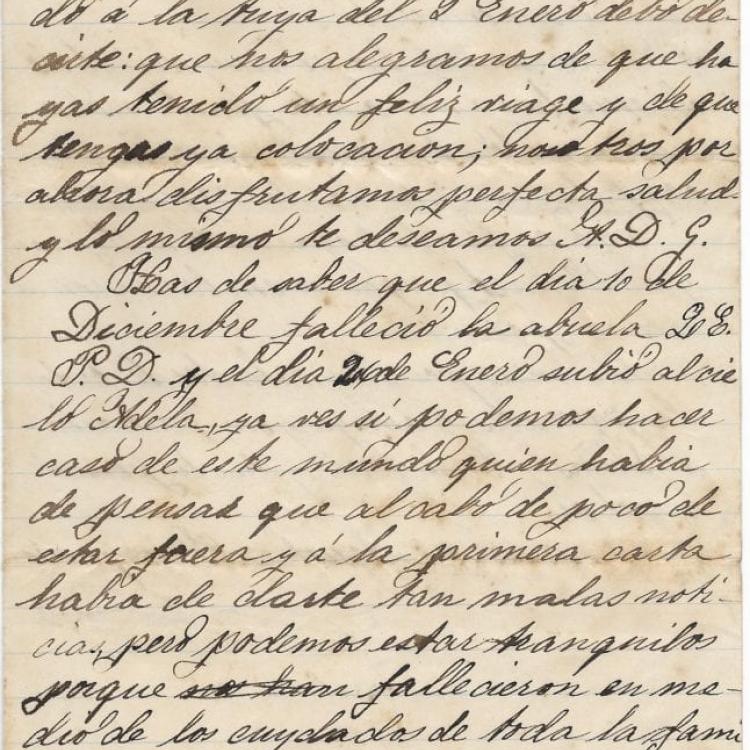 do á la tuya del 2 Enero debo de-
cirte: que nos alegramos de que ha
yas tenido un feliz viage y de que
tengas ya colocacion; nosotros por
ahora disfrutamos perfecta salud
y lo mismo te deseamos A. D. G.
Has de saber que el dia 10 de
Diciembre falleció la abuela Q. E.
P. D. y el dia 24 de Enero subió al cie
lo Adela, ya ves si podemos hacer
caso de este mundo quien habia
de pensar que al cabo de poco de
estar fuera y á la primera carta
habia de darte tan malas noti-
cias, pero podemos estar tranquilos
porque nos han fallecieron en me-
dio de los cuydados de toda la fami